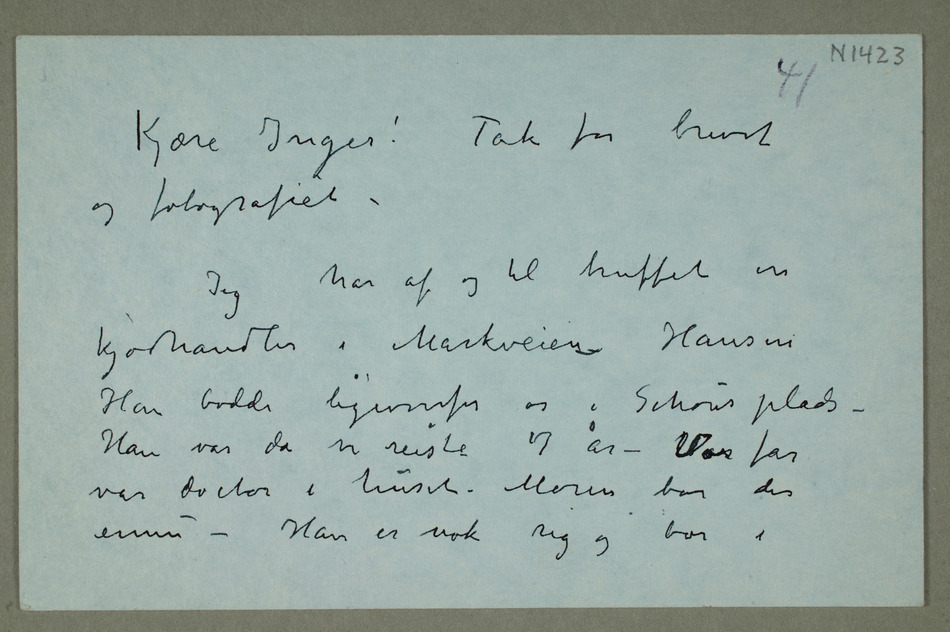 N1423
41
Kjære Inger! Tak for brevet
og fotografiet -
Jeg har af og til truffet en
kjødhandler i Markveien Hansen
Han bodde ligeovenfor os i Schous plads -
Han var da vi reiste 17 år - Vor far
var doctor i huset - Moren bor der
ennu - Han er nok rig og bor i